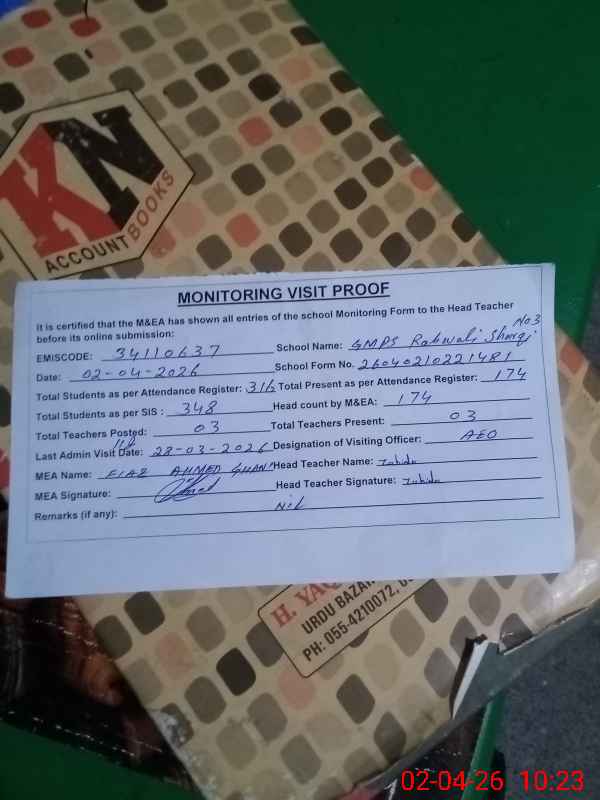 KN
ACCOUNT BOOKS
MONITORING VISIT PROOF
It is certified that the M&EA has shown all entries of the school Monitoring Form to the Head Teacher
before its online submission:
EMISCODE: 34110637 School Name: GMPS Rahwali Sharqi No3
Date: 02-04-2026 School Form No. 26040210221481
Total Students as per Attendance Register: 316 Total Present as per Attendance Register: 174
Total Students as per SIS : 348 Head count by M&EA: 174
Total Teachers Posted: 03 Total Teachers Present: 03
Last Admin Visit Date: 28-03-2026 Designation of Visiting Officer: AEO
MEA Name: FIAZ AHMED GHANI Head Teacher Name: Zahida
MEA Signature: Head Teacher Signature: Zahida
Remarks (if any): Nil
H. YAQ
URDU BAZA
PH: 055-4210072, 0
02-04-26 10:23